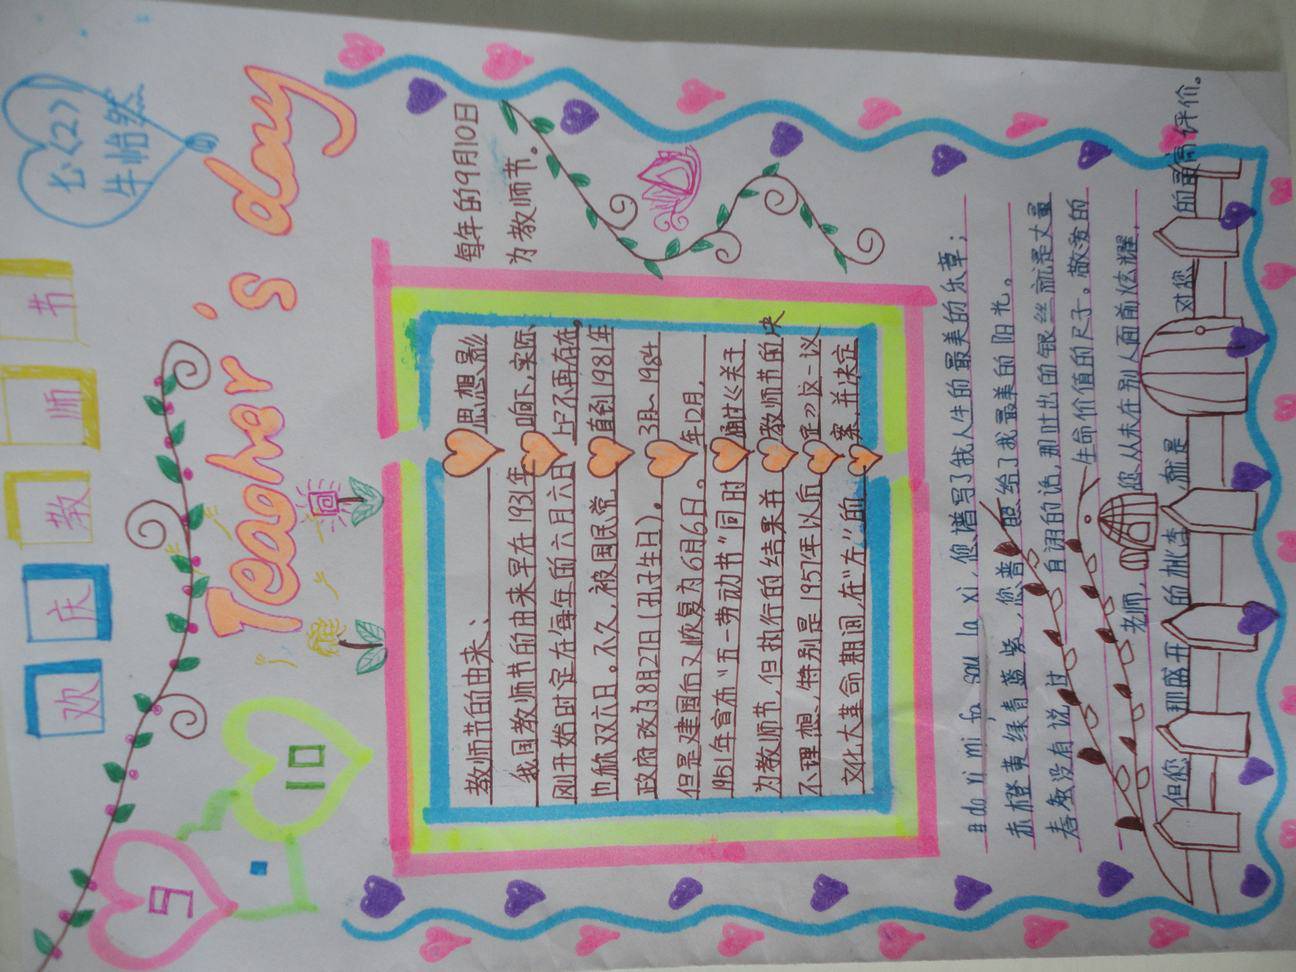 欢庆教师节
七<2>
牛怡然
Teacher's day
9.10
每年的9月10日
为教师节。
教师节的由来:
我国教师节的由来早在1931年
刚开始时定在每年的六月六日
也称双六日。不久,被国民党
政府改为8月27日(孔子生日)。
但是建国后又恢复为6月6日。
1951年宣布"五一劳动节"同时
为教师节,但执行的结果并
不理想、特别是1957年以后
文化大革命期间,在"左"的
思想影
响下,实际
上它不再存在,
直到1981年
3月~1984
年12月,
通过《关于
教师节的决
定》这一议
案,并决定
do xi mi fa sou la xi,您谱写了我人生的最美的乐章;
赤橙黄绿青蓝紫,您普照给了我最美的阳光。
春蚕没有说过自诩的话,那吐出的银丝就是丈量
生命价值的尺子。敬爱的
老师,您从未在别人面前炫耀,
但您那盛开的桃李就是对您的最高评价。